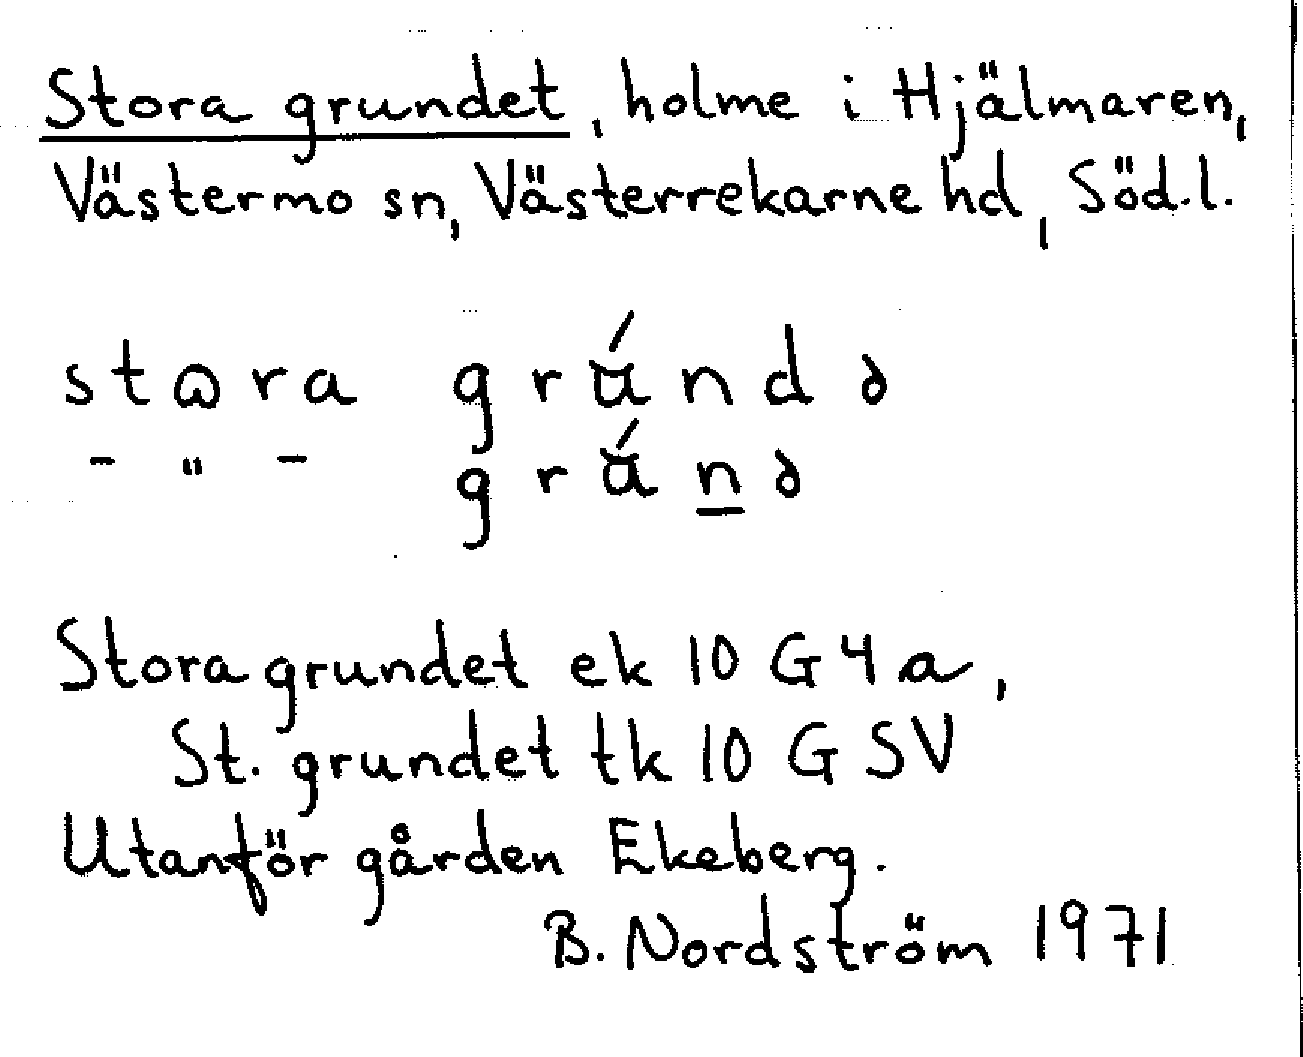 Stora grundet, holme i Hjälmaren,
Västermo sn, Västerrekarne hd, Söd.l.
stɷra grándə
- " - gránə
Stora grundet ek 10 G 4 a,
St. grundet tk 10 G SV
Utanför gården Ekeberg.
B. Nordström 1971